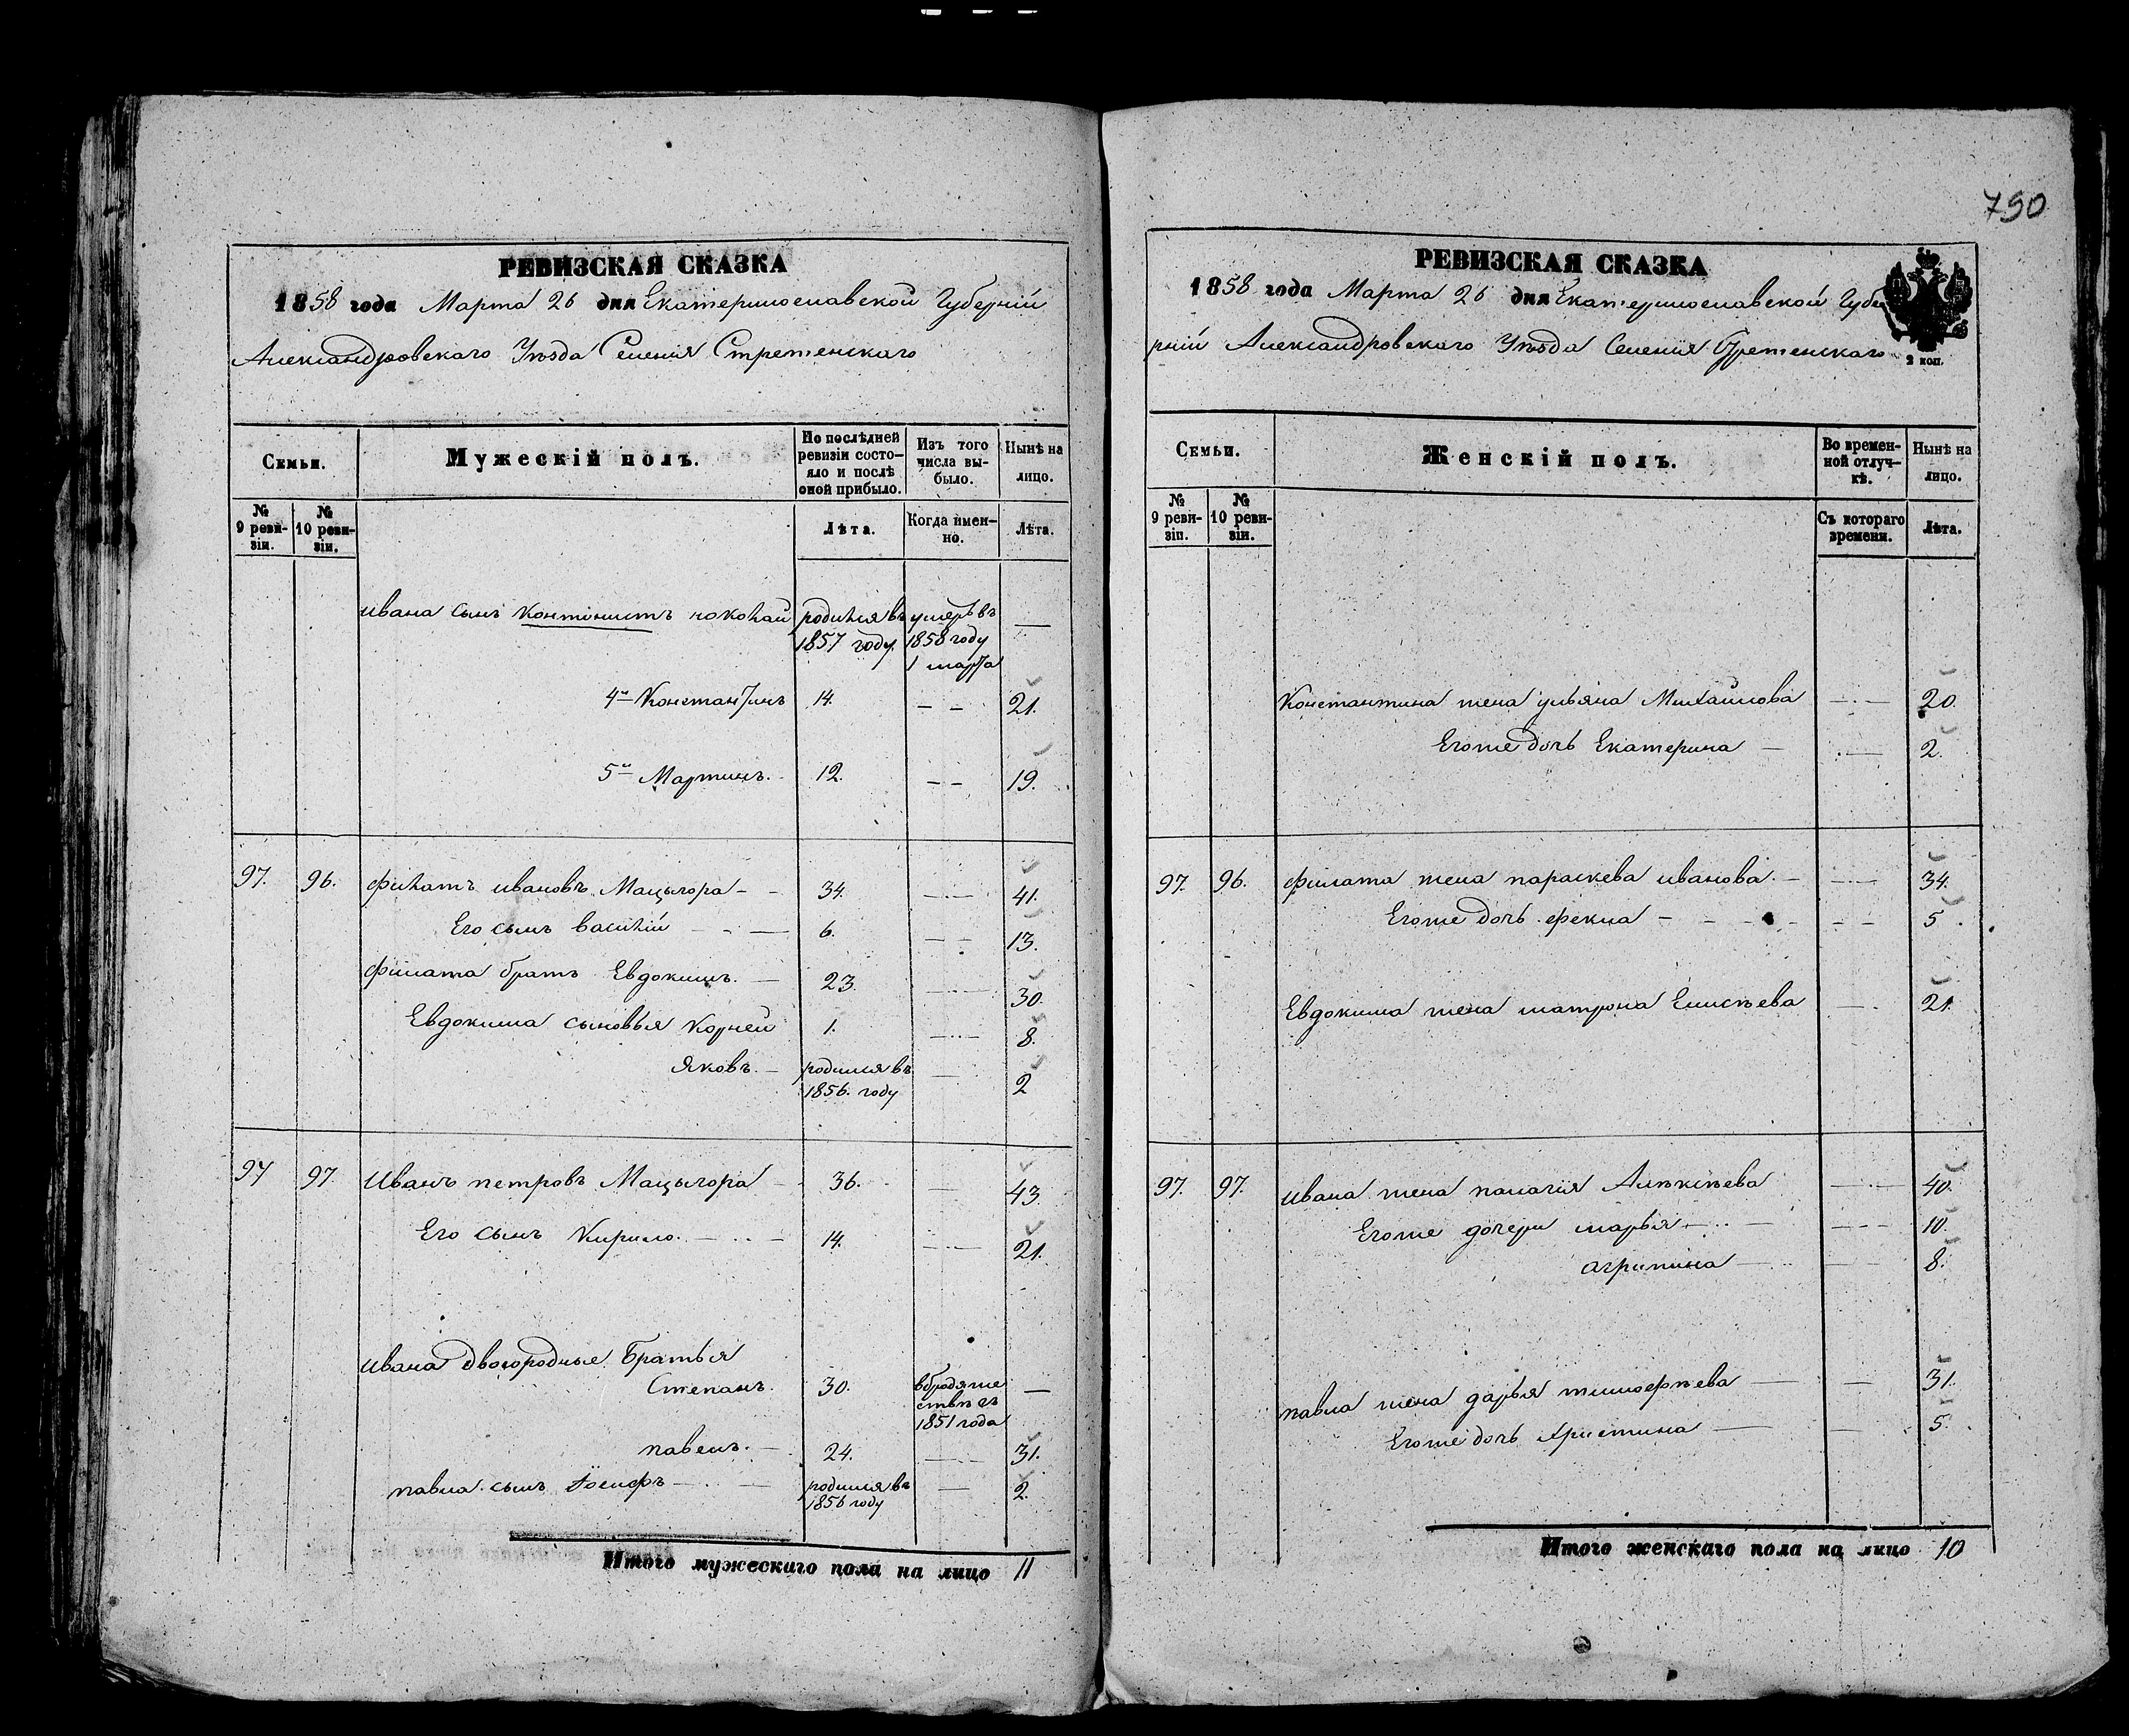 790
РЕВИЗСКАЯ СКАЗКА
1858 года Марта 26 дня Екатеринославской Губерній
Александровскаго Уѣзда Селенія Стретенскаго
Семьи.
Мужескій полъ.
По послѣдней ревизіи состояло и послѣ оной прибыло.
Изъ того числа выбыло.
Нынѣ на лицо.
№ 9 ревизіи.
№ 10 ревизіи.
Лѣта.
Когда имен-но.
Лѣта.
ивана сынъ родился въ умеръ въ —
1857 году. 1858 году
1 марта
4й Константинъ 14. — — 21.
5й Мартинъ. 12. — — 19.
97. 96. филатъ ивановъ Мацыгора 34. — 41.
Его сынъ василій 6. — — 13.
филата братъ Евдокимъ. 23. — 30.
Евдокима сыновья Корней 1. — 8.
Яковъ. родился въ — 2
1856. году
97 97. Иванъ петровъ Мацыгора 36. — 43.
Его сынъ Кирило. 14. — 21.
ивана двоюродные Братья
Степанъ. 30. вбродяже —
ствѣ съ
1851 года
павелъ. 24. — 31.
павла сынъ Іосифъ родился въ — 2.
1856 году
Итого мужескаго пола на лицо 11
РЕВИЗСКАЯ СКАЗКА
1858 года Марта 26 дня Екатеринославской Губе
рній Александровскаго Уѣзда Селенія Стретенскаго
2 коп.
Семьи.
Женскій полъ.
Во времен-ной отлуч-кѣ.
Нынѣ на лицо.
№ 9 реви-зіи.
№ 10 реви-зіи.
Съ котораго времени.
Лѣта.
Константина жена ульяна Михайлова — 20.
Егоже дочь Екатерина — 2.
97. 96. филата жена параскева иванова. — 34.
Егоже дочь фекла — 5.
Евдокима жена матрона Елисѣева — 21.
97. 97. ивана жена палагія Алѣксѣева — 40.
Егоже дочери марья — 10.
агрипина — 8.
павла жена дарья тимофѣева — 31.
Егоже дочь Христина — 5
Итого женскаго пола на лицо 10